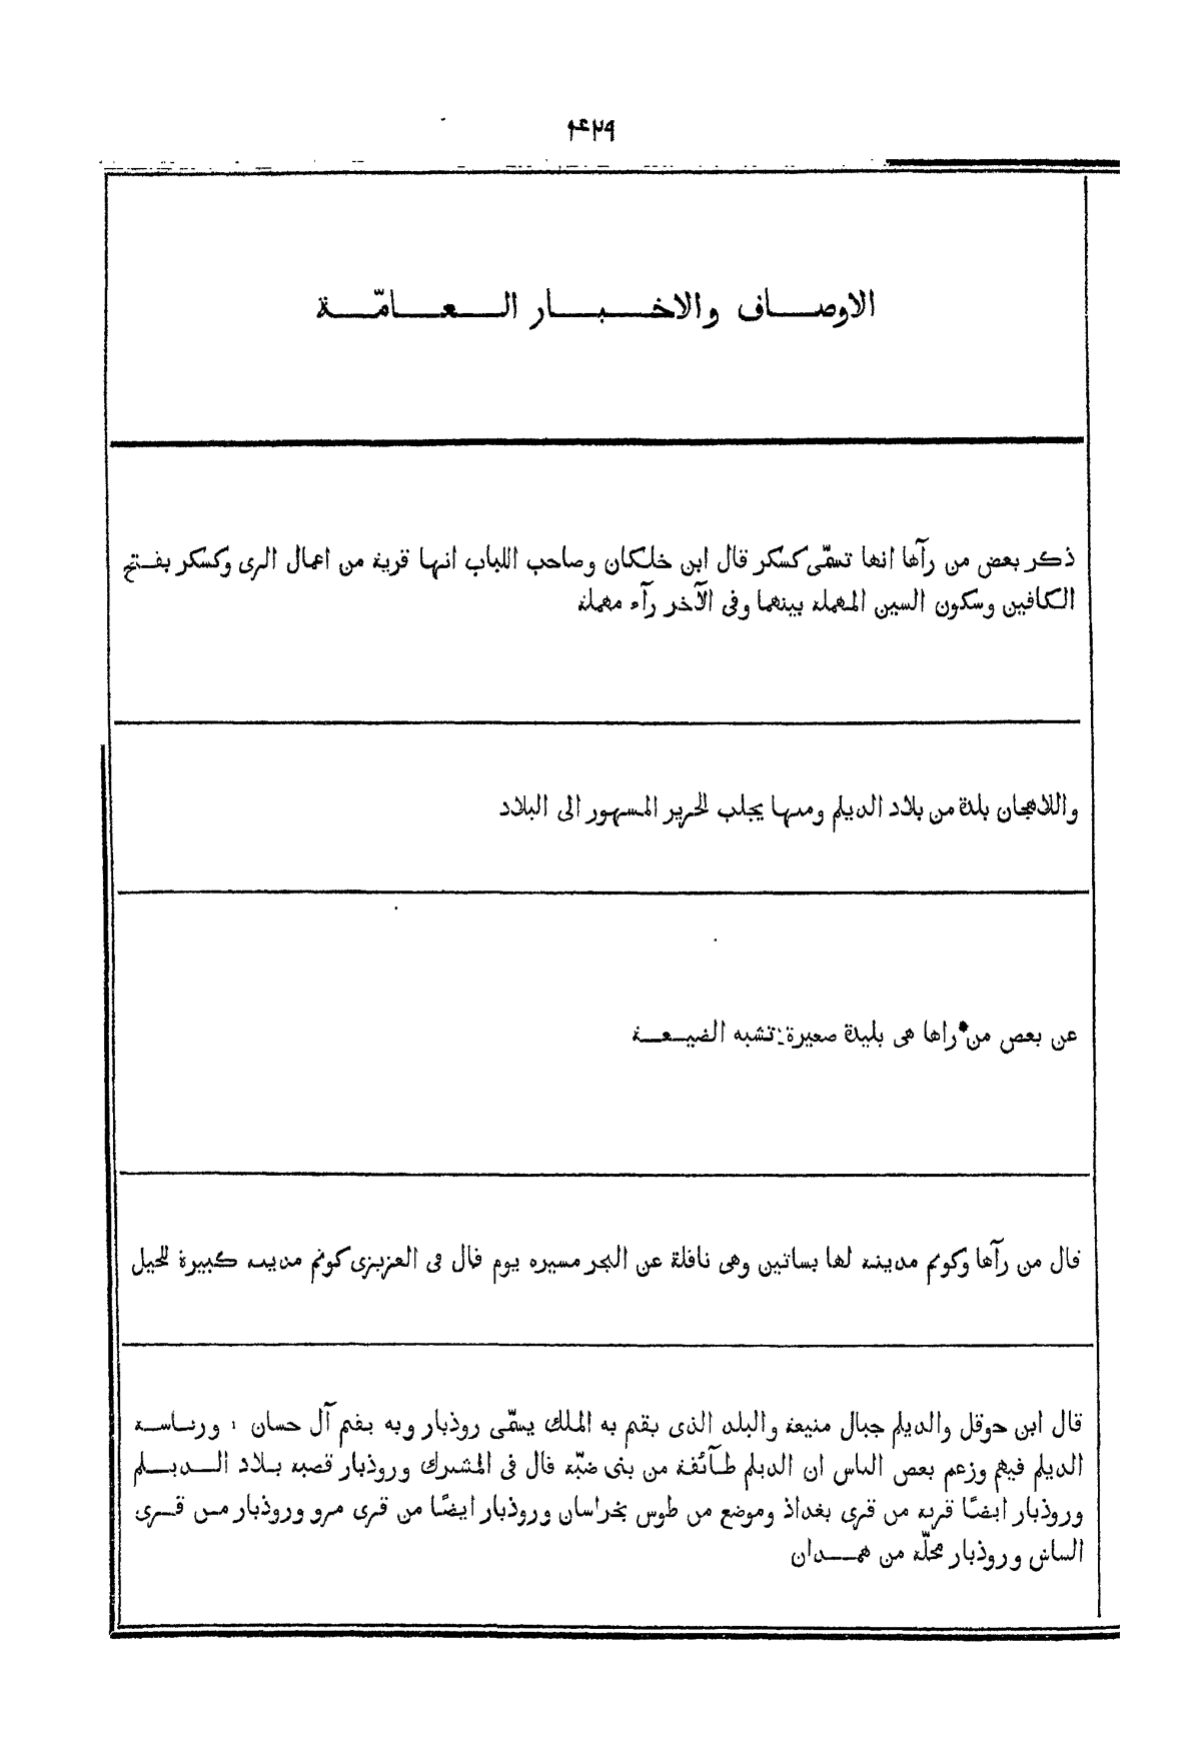 ۴۲۹
الاوصاف والاخبار العامّة
ذكر بعض من رآها انها تسمّى كسكر قال ابن خلكان وصاحب اللباب انها قرية من اعمال الرى وكسكر بفتح
الكافين وسكون السين المهملة بينهما وفى الآخر رآء مهملة
واللاهجان بلدة من بلاد الديلم ومنها يجلب الحرير المشهور الى البلاد
عن بعض من راها هى بليدة صغيرة تشبه الضيعة
قال من رآها وكوتم مدينة لها بساتين وهى ناقلة عن البحر مسيرة يوم قال فى العزيزى كوتم مدينة كبيرة للجيل
قال ابن حوقل والديلم جبال منيعة والبلد الذى يقيم به الملك يسمّى روذبار وبه يقيم آل حسان ورئاسة
الديلم فيهم وزعم بعض الناس ان الديلم طآئفة من بنى ضبّة قال فى المشترك وروذبار قصبة بلاد الديلم
وروذبار ايضًا قرية من قرى بغداذ وموضع من طوس بخراسان وروذبار ايضًا من قرى مرو وروذبار من قرى
الشاش وروذبار محلّة من همدان